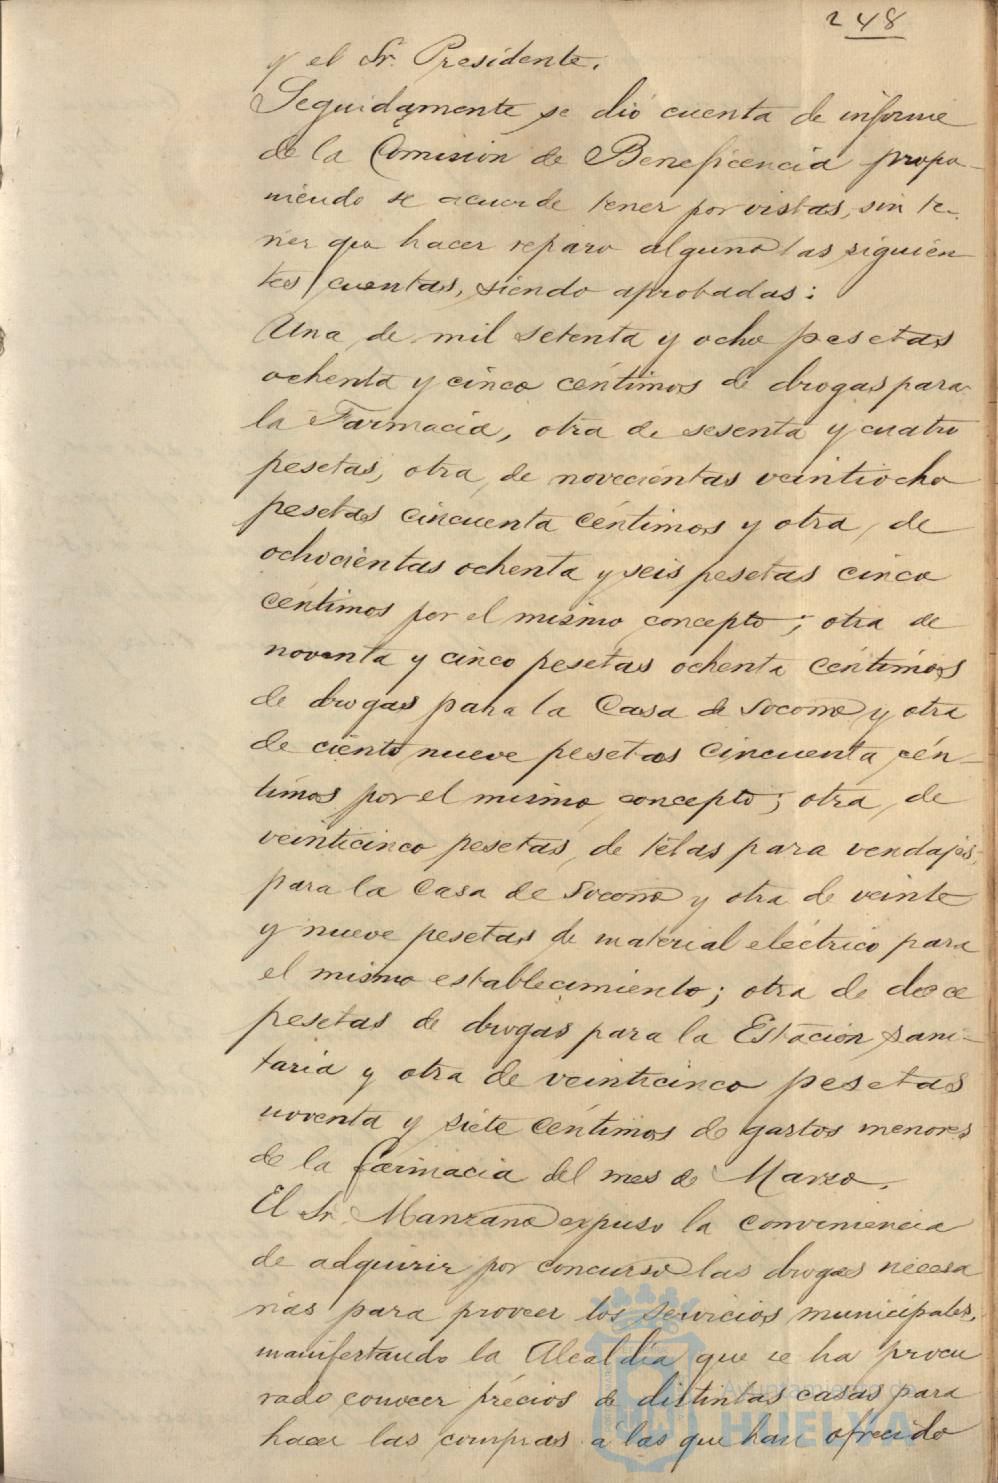 248
y el Sr. Presidente.
Seguidamente se dió cuenta de informe
de la Comisión de Beneficencia propo-
niendo se acuerde tener por vistas, sin te-
ner que hacer reparo alguno las siguien
tes cuentas, siendo aprobadas:
Una de mil setenta y ocho pesetas
ochenta y cinco céntimos de drogas para
la Farmacia, otra de sesenta y cuatro
pesetas, otra de novecientas veintiocho
pesetas cincuenta céntimos y otra, de
ochocientas ochenta y seis pesetas cinco
céntimos por el mismo concepto; otra de
noventa y cinco pesetas ochenta céntimos
de drogas para la Casa de Socorro y otra
de ciento nueve pesetas cincuenta cén-
timos por el mismo concepto; otra, de
veinticinco pesetas, de telas para vendajes,
para la Casa de Socorro y otra de veinte
y nueve pesetas de material eléctrico para
el mismo establecimiento; otra de doce
pesetas de drogas para la Estación sani-
taria y otra de veinticinco pesetas
noventa y siete céntimos de gastos menores
de la farmacia del mes de Marzo.
El Sr. Manzano expuso la conveniencia
de adquirir por concurso las drogas necesa
rias para proveer los servicios municipales,
manifestando la Alcaldía que se ha procu
rado conocer precios de distintas casas para
hacer las compras a las que han ofrecido
Ayuntamiento de
HUELVA